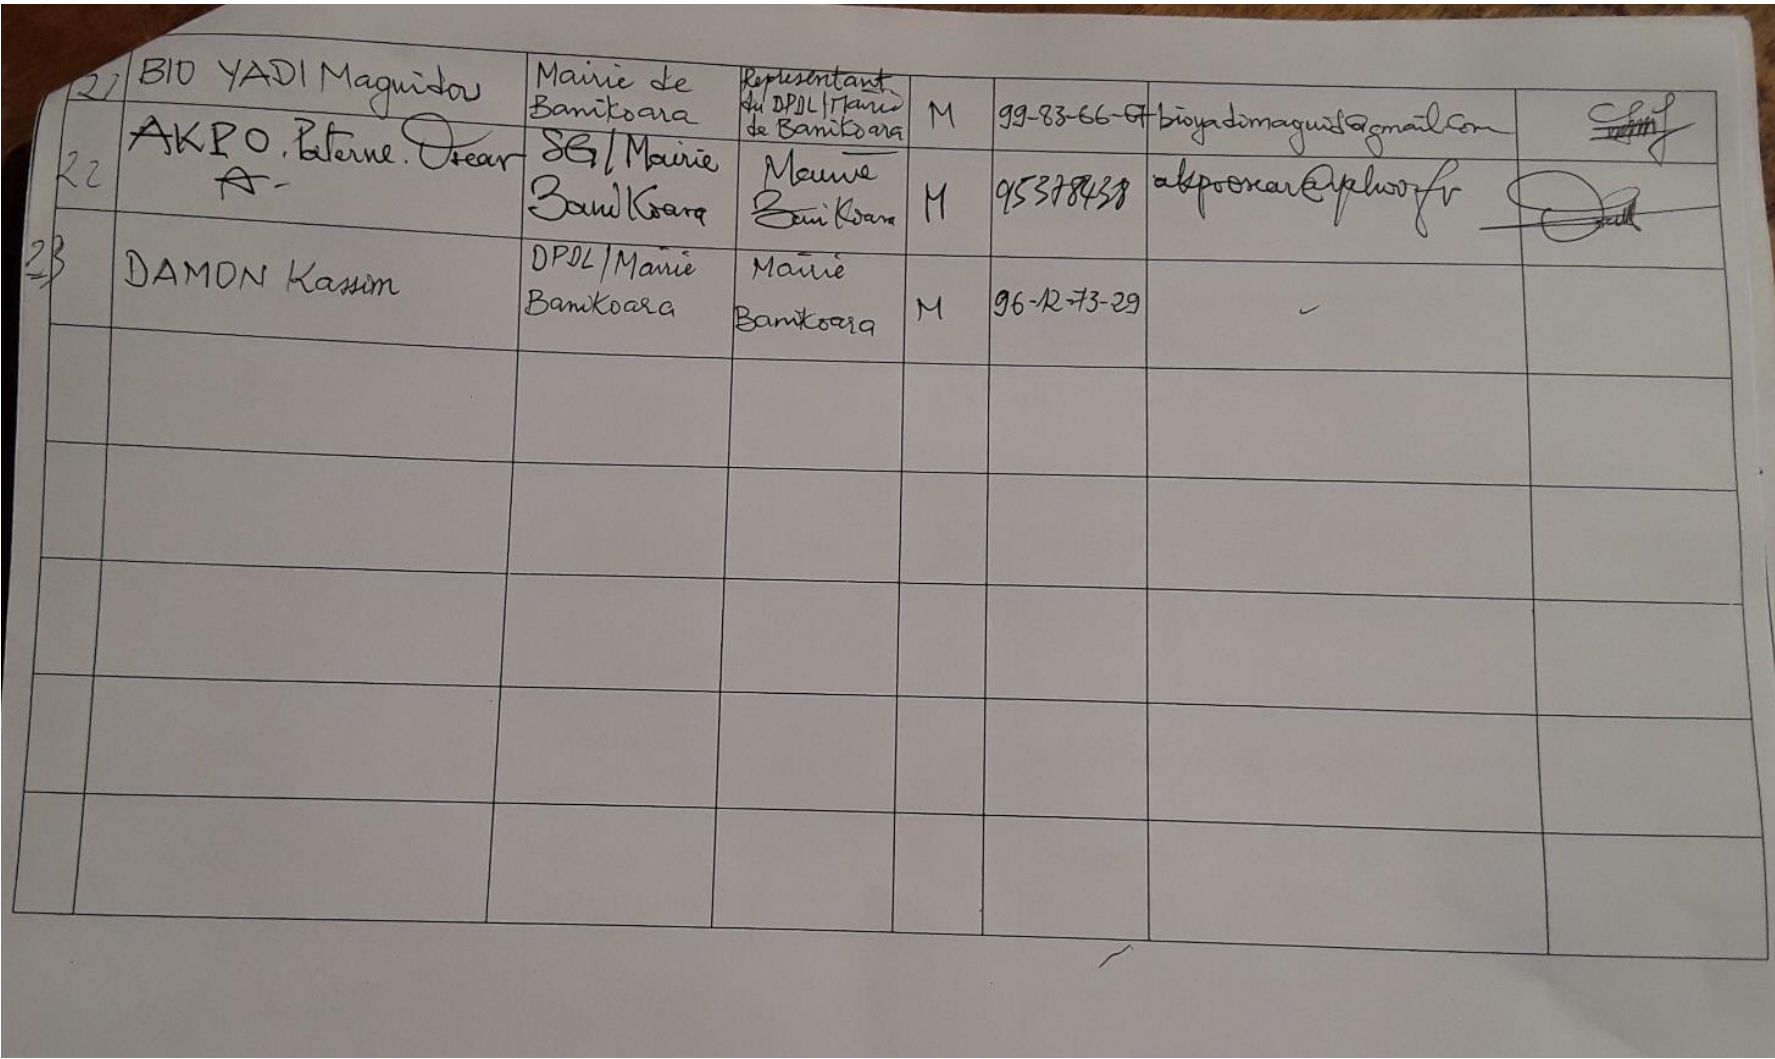 21 BIO YADI Maguidou
Mairie de
Banikoara
Representant
du DPDL/Mairie
de Banikoara
M
99-83-66-67
bioyadimaguid@gmail.com
22 AKPO. Paterne. Oscar
A-
SG/Mairie
BaniKoara
Mairie
BaniKoara
M
95378438
akpooscar@yahoo.fr
23 DAMON Kassim
DPDL/Mairie
Banikoara
Mairie
Banikoara
M
96-12-73-29